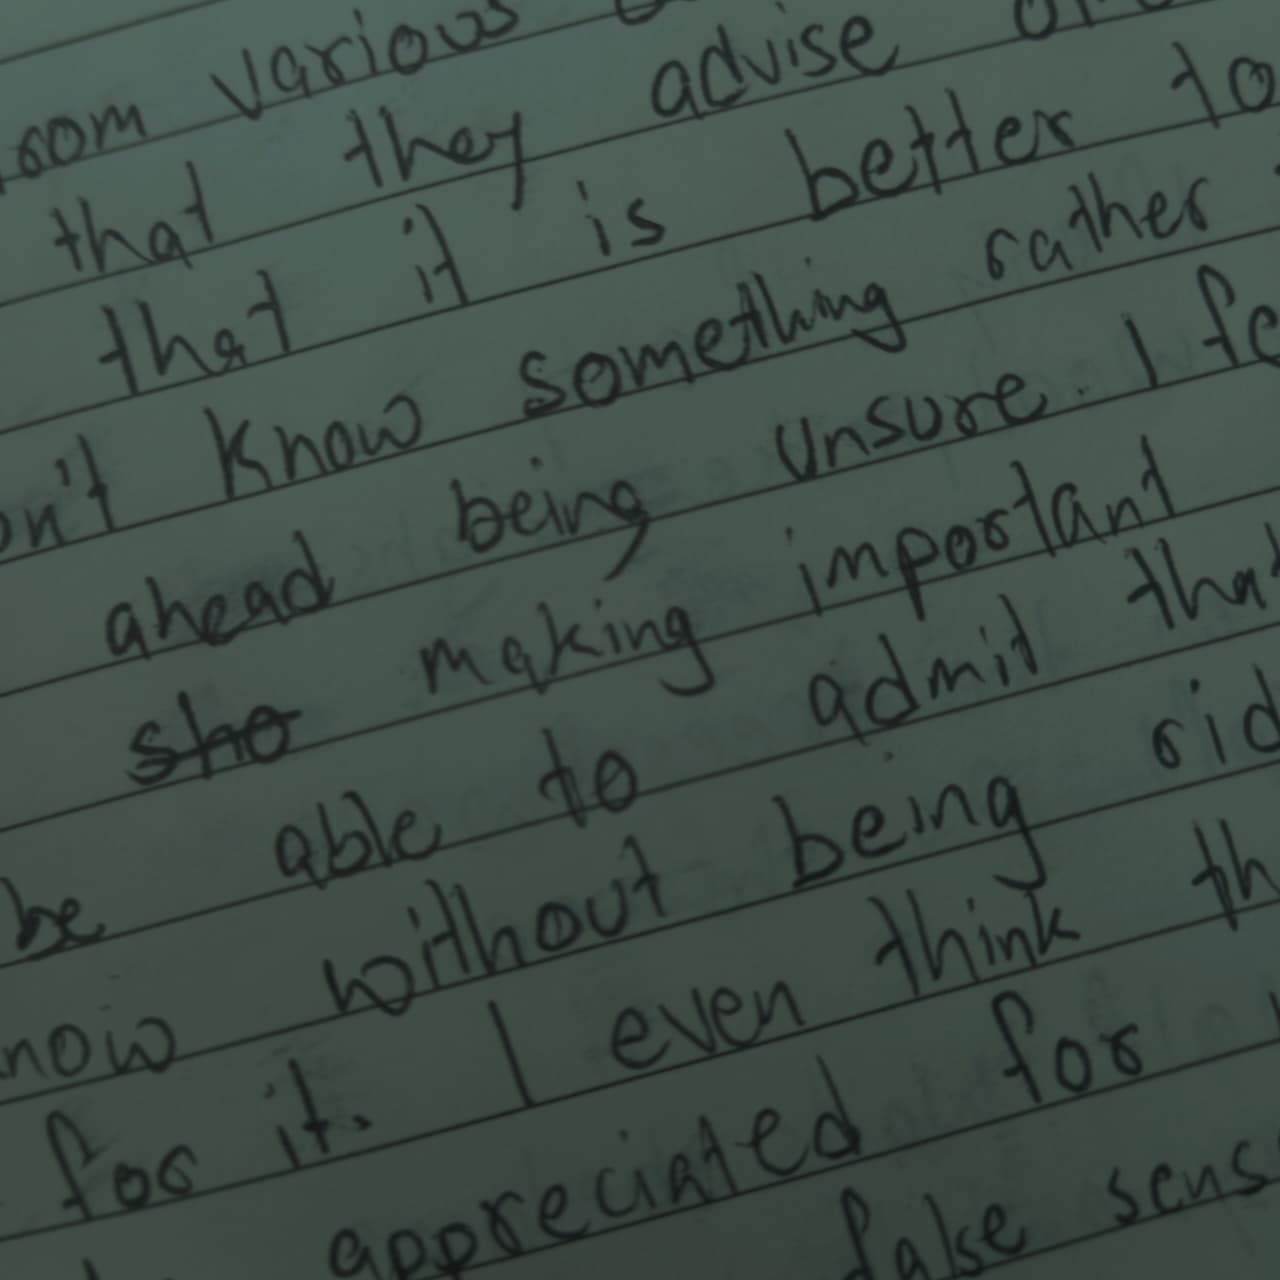 rom various
that they advise
that it is better to
on't know something rather
ahead being unsure. I fe
sho making important
be able to admit that
now without being rid
for it. I even think th
appreciated for
false sens